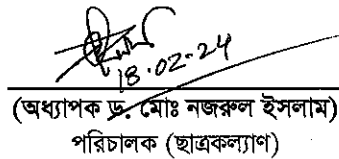 18.02-24
(অধ্যাপক ড. মোঃ নজরুল ইসলাম)
পরিচালক (ছাত্রকল্যাণ)